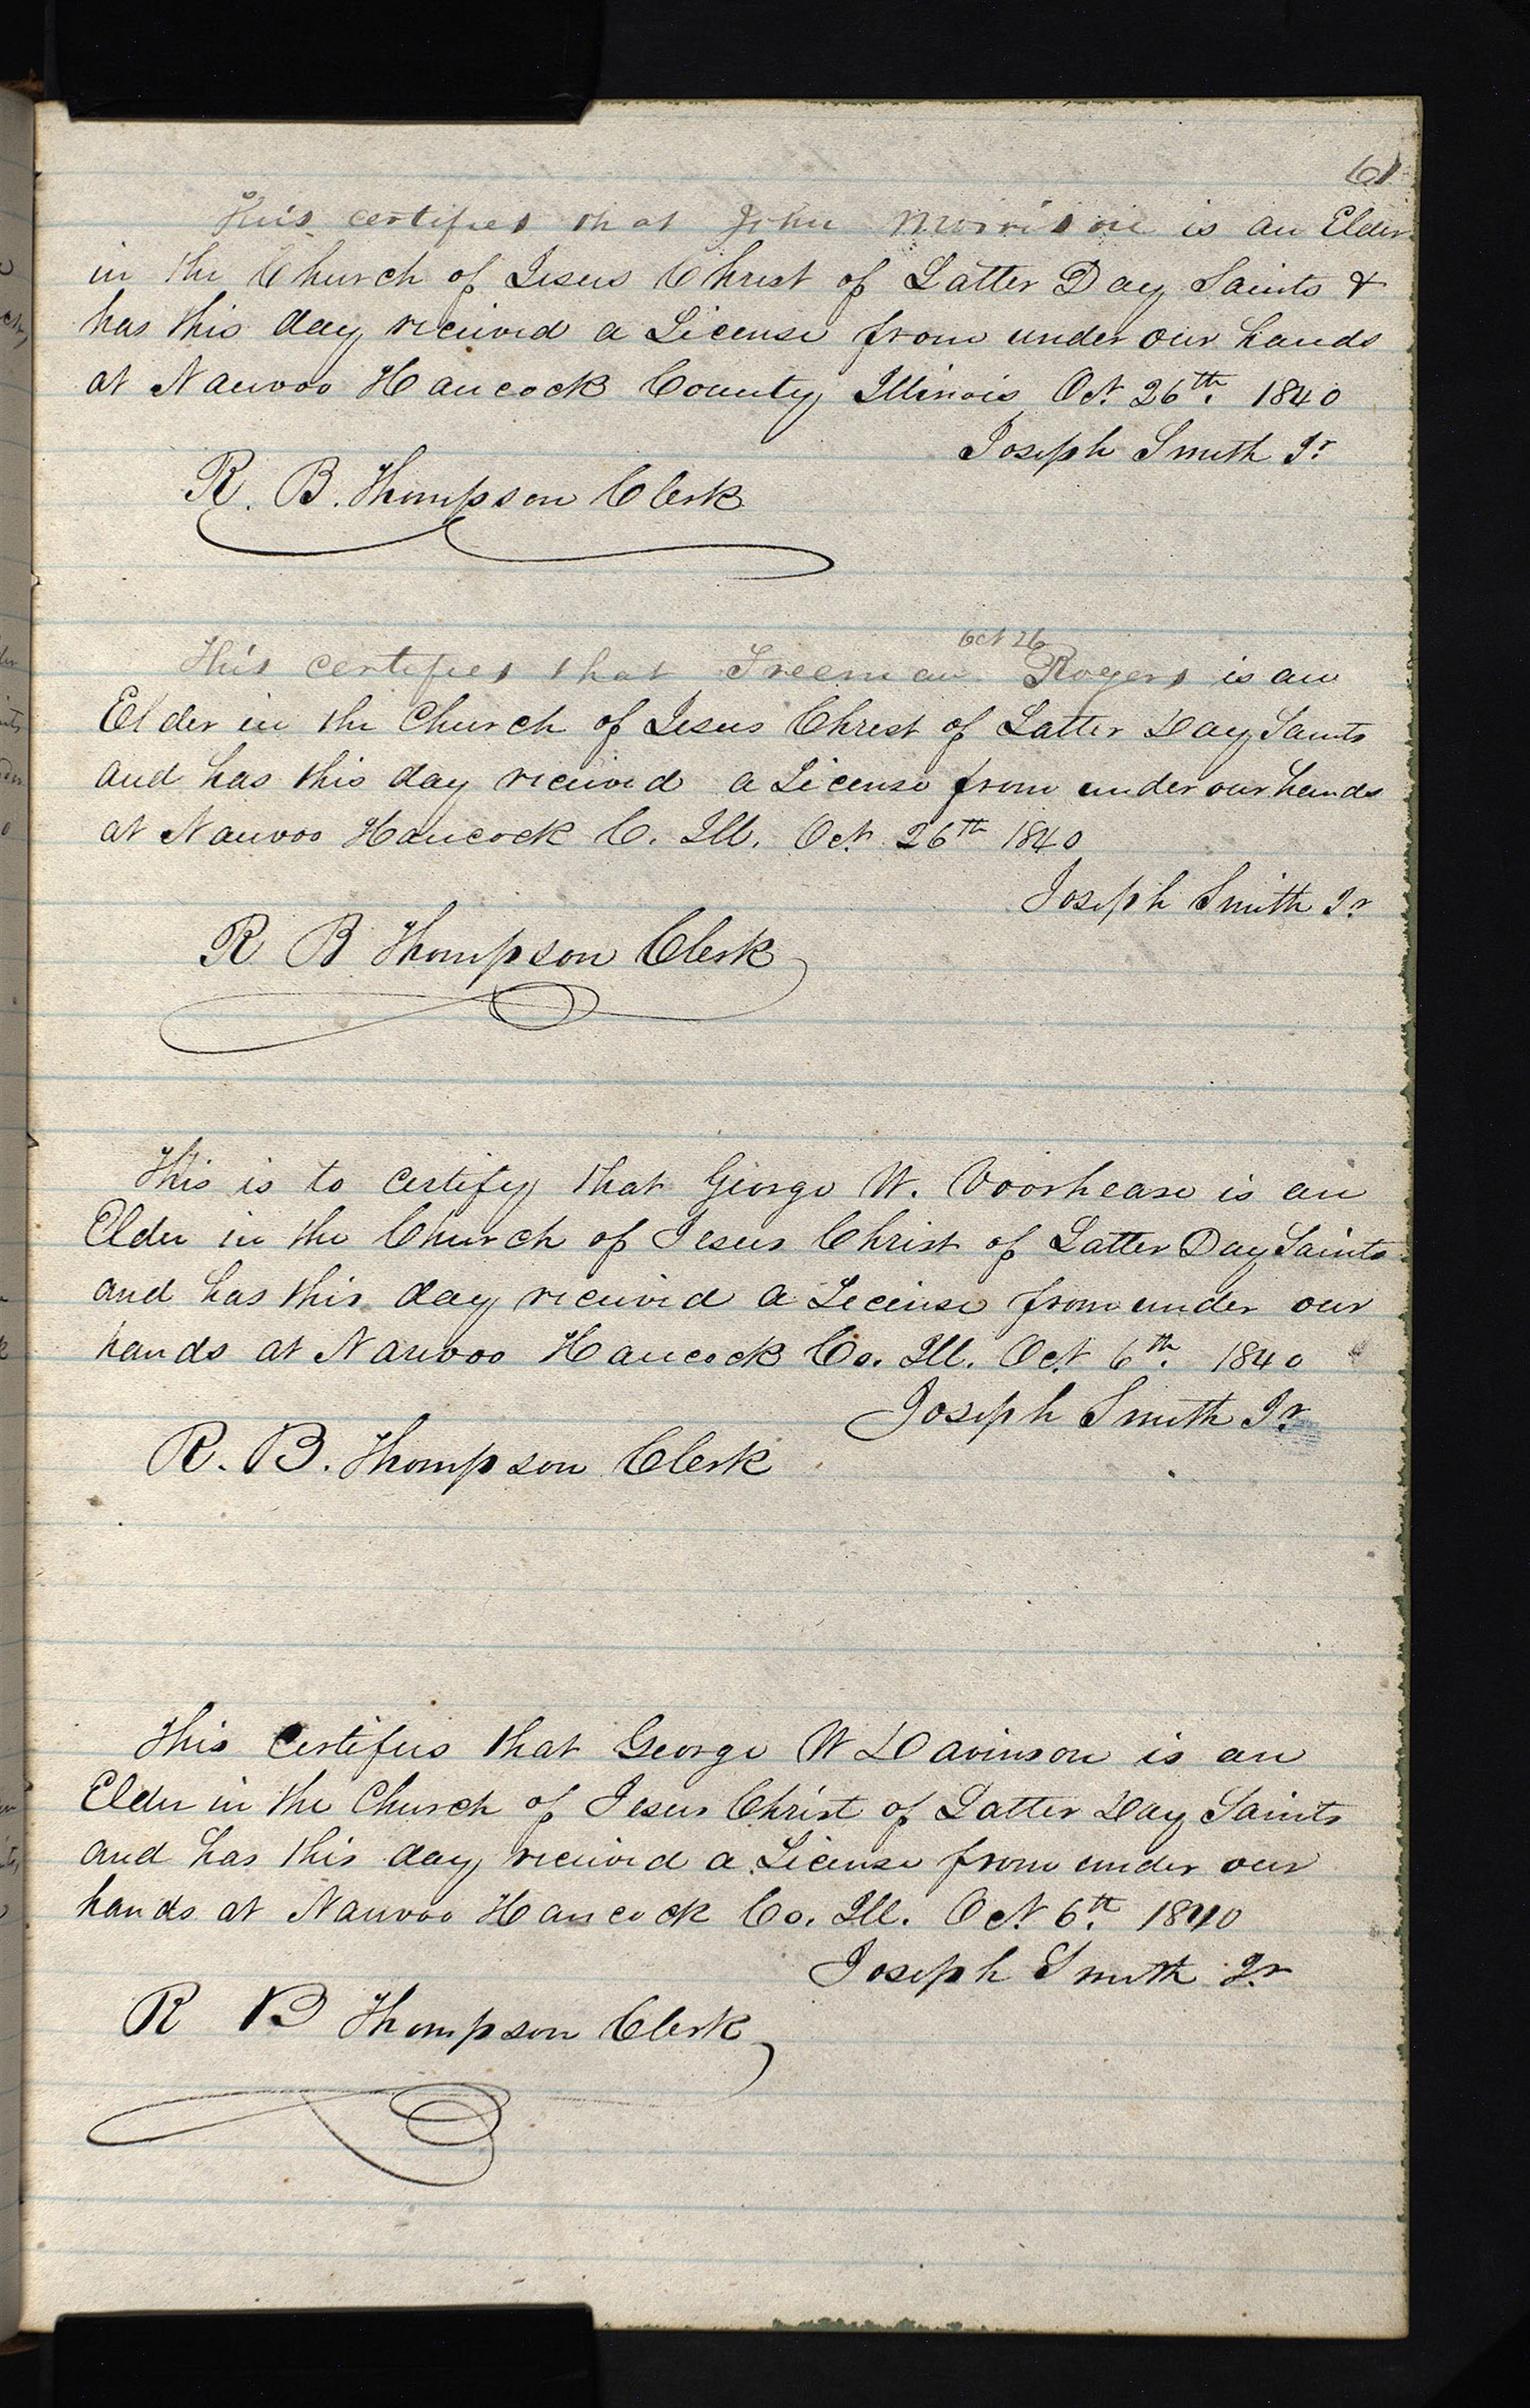 61
This certifies that John Morrison is an Elder
in the Church of Jesus Christ of Latter Day Saints &
has this day received a License from under our hands
at Nauvoo Hancock County Illinois Oct. 26th. 1840
Joseph Smith Jr.
R. B. Thompson Clerk
Oct 26
This certifies that Freeman Rogers is an
Elder in the Church of Jesus Christ of Latter Day Saints
and has this day received a License from under our hands
at Nauvoo Hancock C. Ill. Oct. 26th 1840
Joseph Smith Jr.
R B Thompson Clerk
This is to certify that George W. Voorhease is an
Elder in the Church of Jesus Christ of Latter Day Saints
and has this day received a License from under our
hands at Nauvoo Hancock Co. Ill. Oct. 6th. 1840
Joseph Smith Jr.
R. B. Thompson Clerk
This certifies that George W Davinson is an
Elder in the Church of Jesus Christ of Latter Day Saints
and has this day received a License from under our
hands at Nauvoo Hancock Co. Ill. Oct. 6th. 1840
Joseph Smith Jr.
R B Thompson Clerk